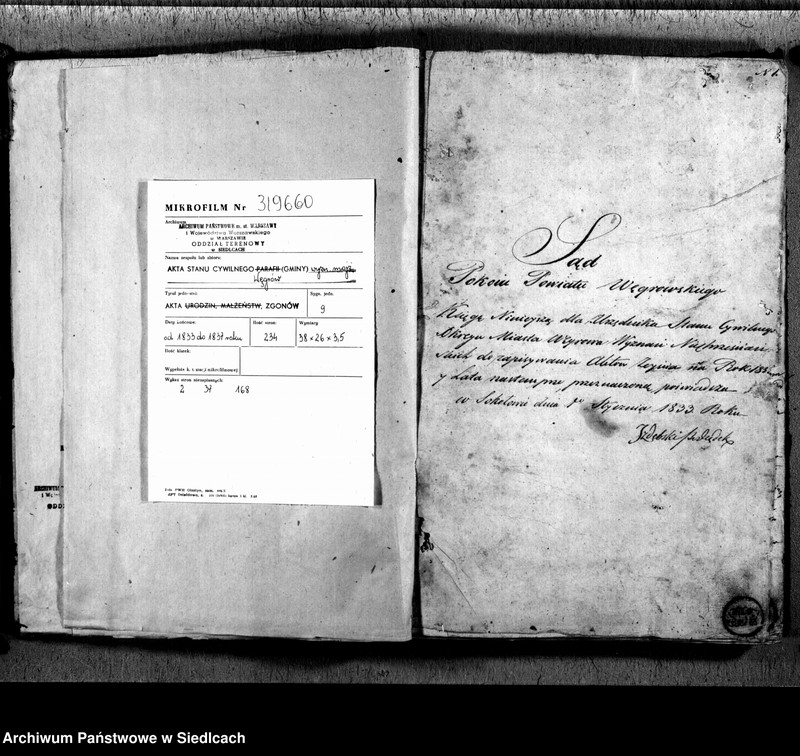 MIKROFILM Nr 319660
Archiwum
ARCHIWUM PAŃSTWOWE m. st. WARSZAWY
i Województwa Warszawskiego
w WARSZAWIE
ODDZIAŁ TERENOWY
w SIEDLCACH
Nazwa zespołu lub zbioru:
AKTA STANU CYWILNEGO PARAFII (GMINY) wyzn. mojż.
Węgrów
Tytuł jednostki: Sygn. jedn.
AKTA URODZIN, MAŁŻEŃSTW, ZGONÓW 9
Daty końcowe: Ilość stron: Wymiary
od 1833 do 1837 roku 234 38 × 26 × 3,5
Ilość klatek:
Wypełnia k. i mikrofilmowej
Wykaz stron niezapisanych:
2 37 168
N 1.
Sąd
Pokoiu Powiatu Węgrowskiego
Księgę Ninieyszą dla Urzędnika Stanu Cywilnego
Okręgu Miasta Węgrowa Wyznań Niechrześciań-
skich do zapisywania Aktów Zeyścia na Rok 1833
y Lata następne przeznaczoną poświadcza
w Sokołowie dnia 1o Stycznia 1833 Roku
Archiwum Państwowe w Siedlcach